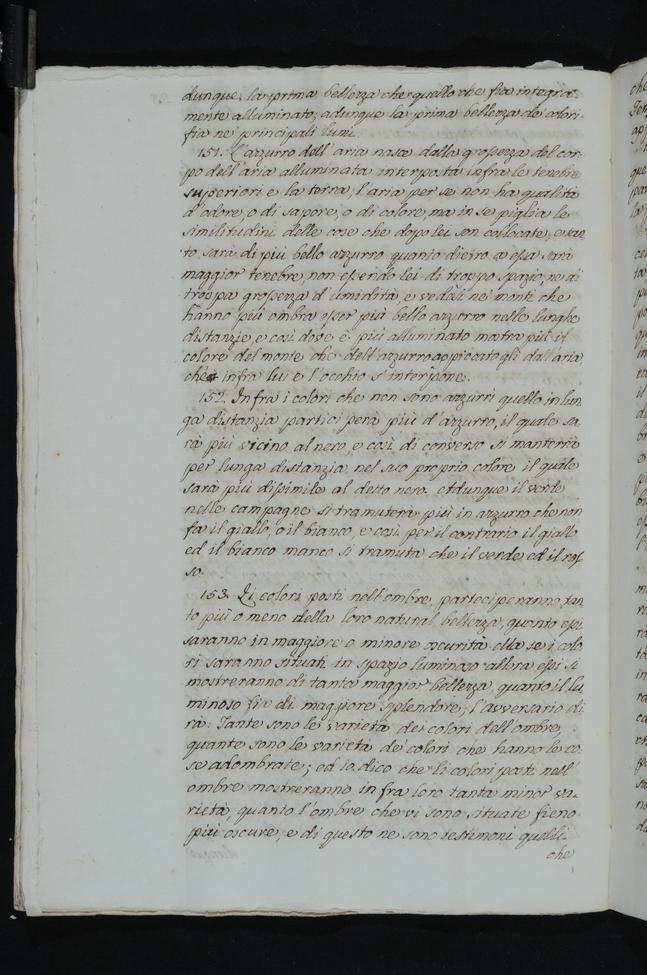 dunque la prima bellezza che quello che fia integra
mente alluminato; adunque la prima bellezza de colori
fia ne principali lumi.
151. L'azzurro dell'aria nasce dalla grossezza del cor
po dell'aria alluminata interposta infra le tenebre
superiori e la terra; l'aria per se non ha qualità
d'odore, o di sapore, o di colore, ma in se piglia le
similitudini delle cose che dopo lei son collocate, e tan
to sarà di più bello azzurro quanto dietro a essa sarà
maggior tenebre, non essendo lei di troppo spazio, ne di
troppa grossezza d'umidità, e vedasi ne monti che
hanno più ombra esser più bello azzurro nelle lunghe
distanzie, e così dove è più alluminato mostra più il
colore del monte che dell'azzurro appiccatogli dall'aria,
che infra lui e l'occhio s'interpone.
152. Infra i colori che non sono azzurri quello in lun
ga distanzia participerà più d'azzurro, il quale sa
rà più vicino al nero, e così di converso si manterrà
per lunga distanzia nel suo proprio colore il quale
sarà più dissimile al detto nero. Adunque il verde
nelle campagne si tramuterà più in azzurro che non
fa il giallo, o il bianco, e così per il contrario il giallo
ed il bianco manco si tramuta che il verde, ed il ros
so.
153. Li colori posti nell'ombre parteciperanno tan
to più o meno della loro natural bellezza, quanto essi
saranno in maggiore o minore oscurità. Ma se i colo
ri saranno situati in spazio luminoso allora essi si
mostreranno di tanta maggior bellezza, quanto il lu
minoso fia di maggiore splendore; l'avversario di
rà: Tante sono le varietà dei colori dell'ombre,
quante sono le varietà de' colori che hanno le co
se adombrate; ed io dico che li colori posti nell'
ombre mostreranno infra loro tanta minor va-
rietà, quanto l'ombre che vi sono situate fieno
più oscure, e di questo ne sono testimoni quelli
che